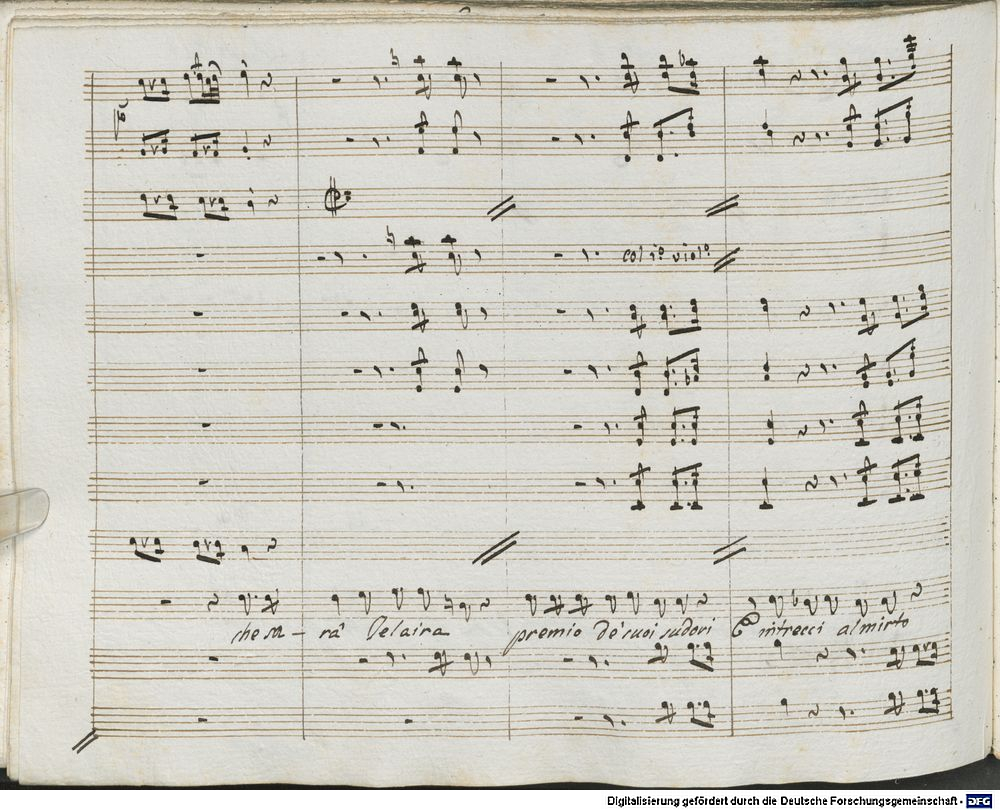 col 1º viol.º
che sa - rà Velaira premio de' suoi sudori E intrecci al mirto
Digitalisierung gefördert durch die Deutsche Forschungsgemeinschaft - DFG